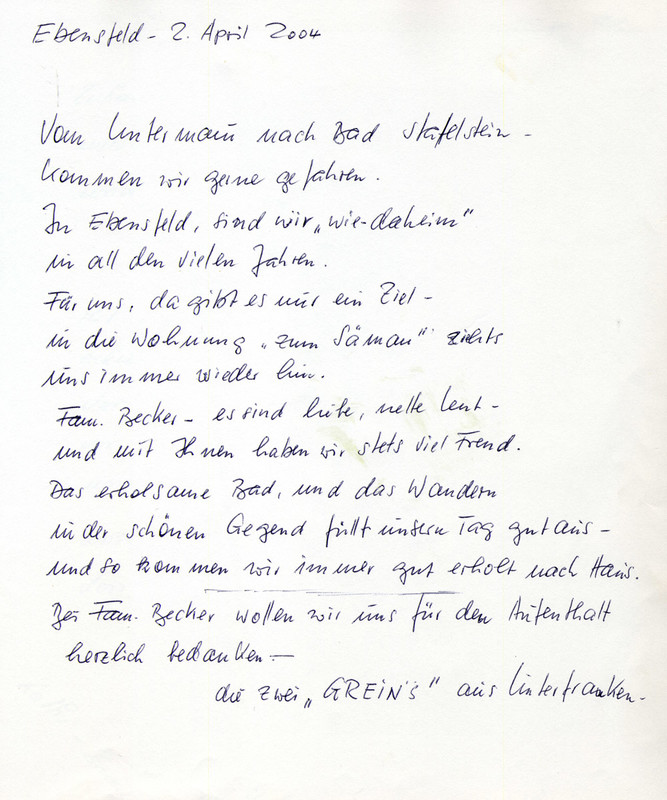 Ebensfeld - 2. April 2004
Vom Untermain nach Bad Stafelstein -
kommen wir gerne gefahren.
In Ebensfeld, sind wir „wie-daheim"
in all den vielen Jahren.
Für uns, da gibt es nur ein Ziel -
in die Wohnung „zum Säman" ziehts
uns immer wieder hin.
Fam. Becker - es sind liebe, nette Leut -
und mit Ihnen haben wir stets viel Freud.
Das erholsame Bad, und das Wandern
in der schönen Gegend füllt unsern Tag gut aus -
und so kommen wir immer gut erholt nach Haus.
Bei Fam. Becker wollen wir uns für den Aufenthalt
herzlich bedanken -
die zwei „GREIN'S" aus Unterfranken -